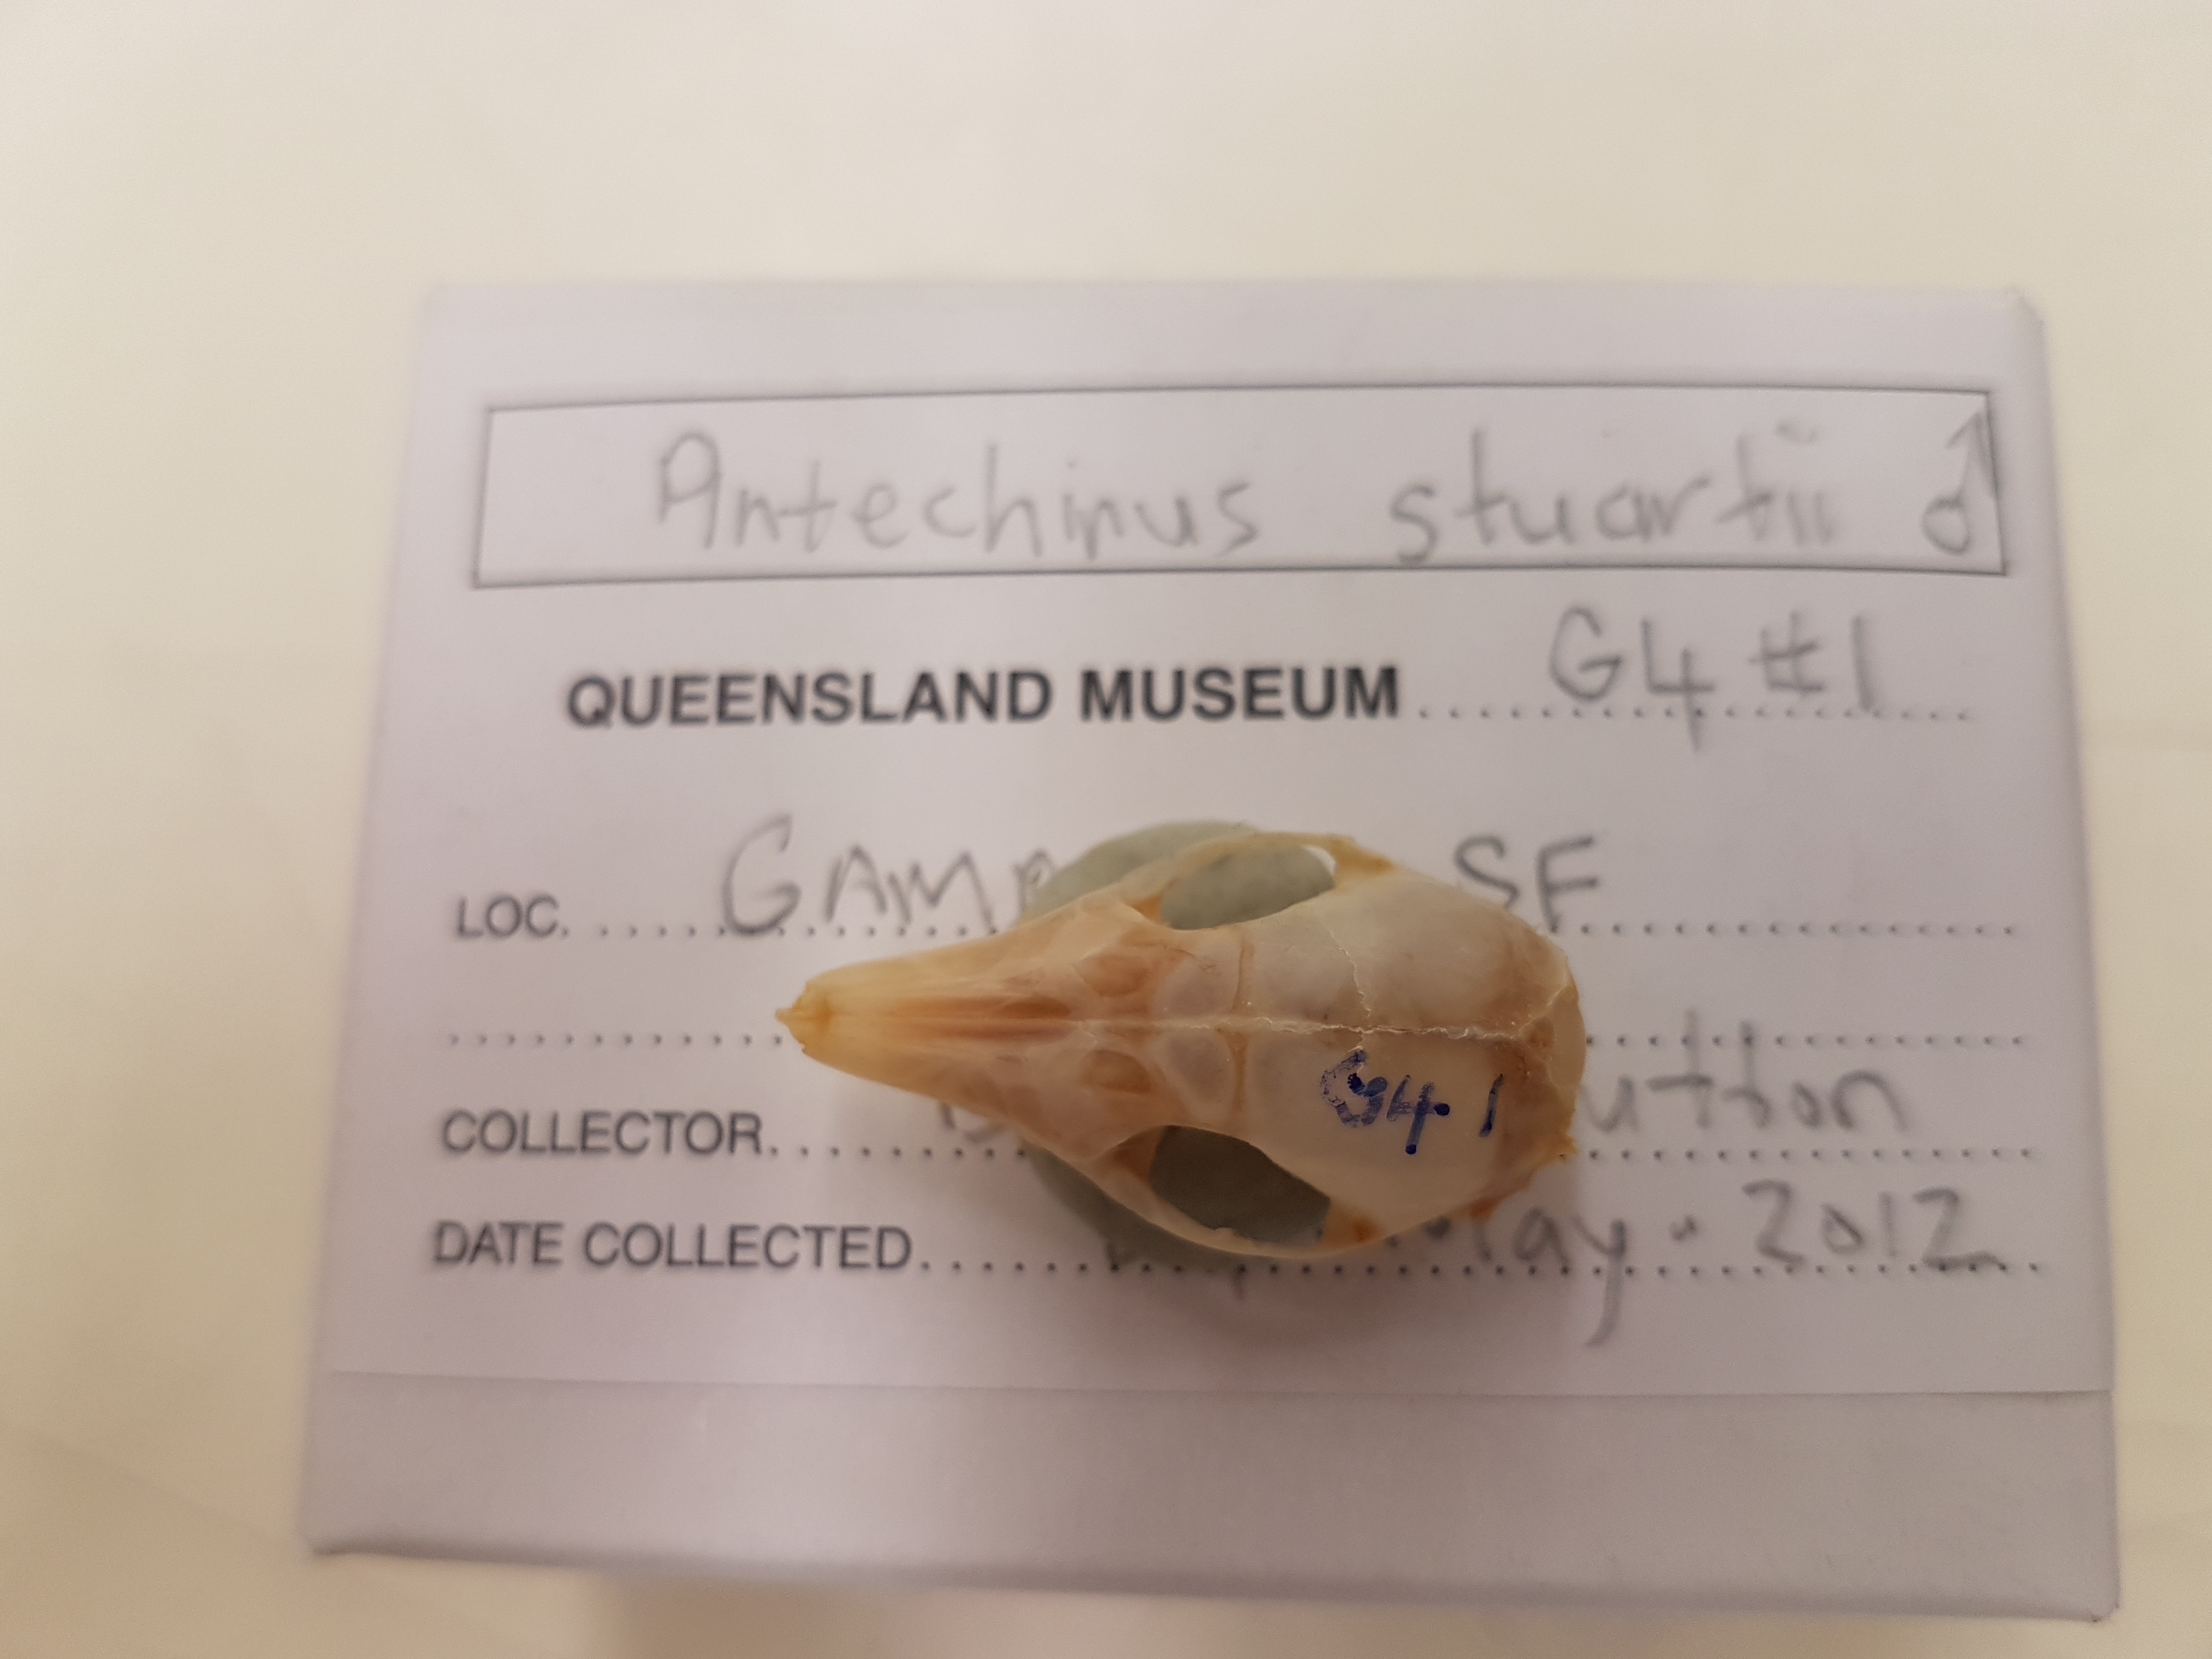 Antechinus stuartii ♂
QUEENSLAND MUSEUM G4 #1
LOC. SF
COLLECTOR
DATE COLLECTED 2012
G4.1